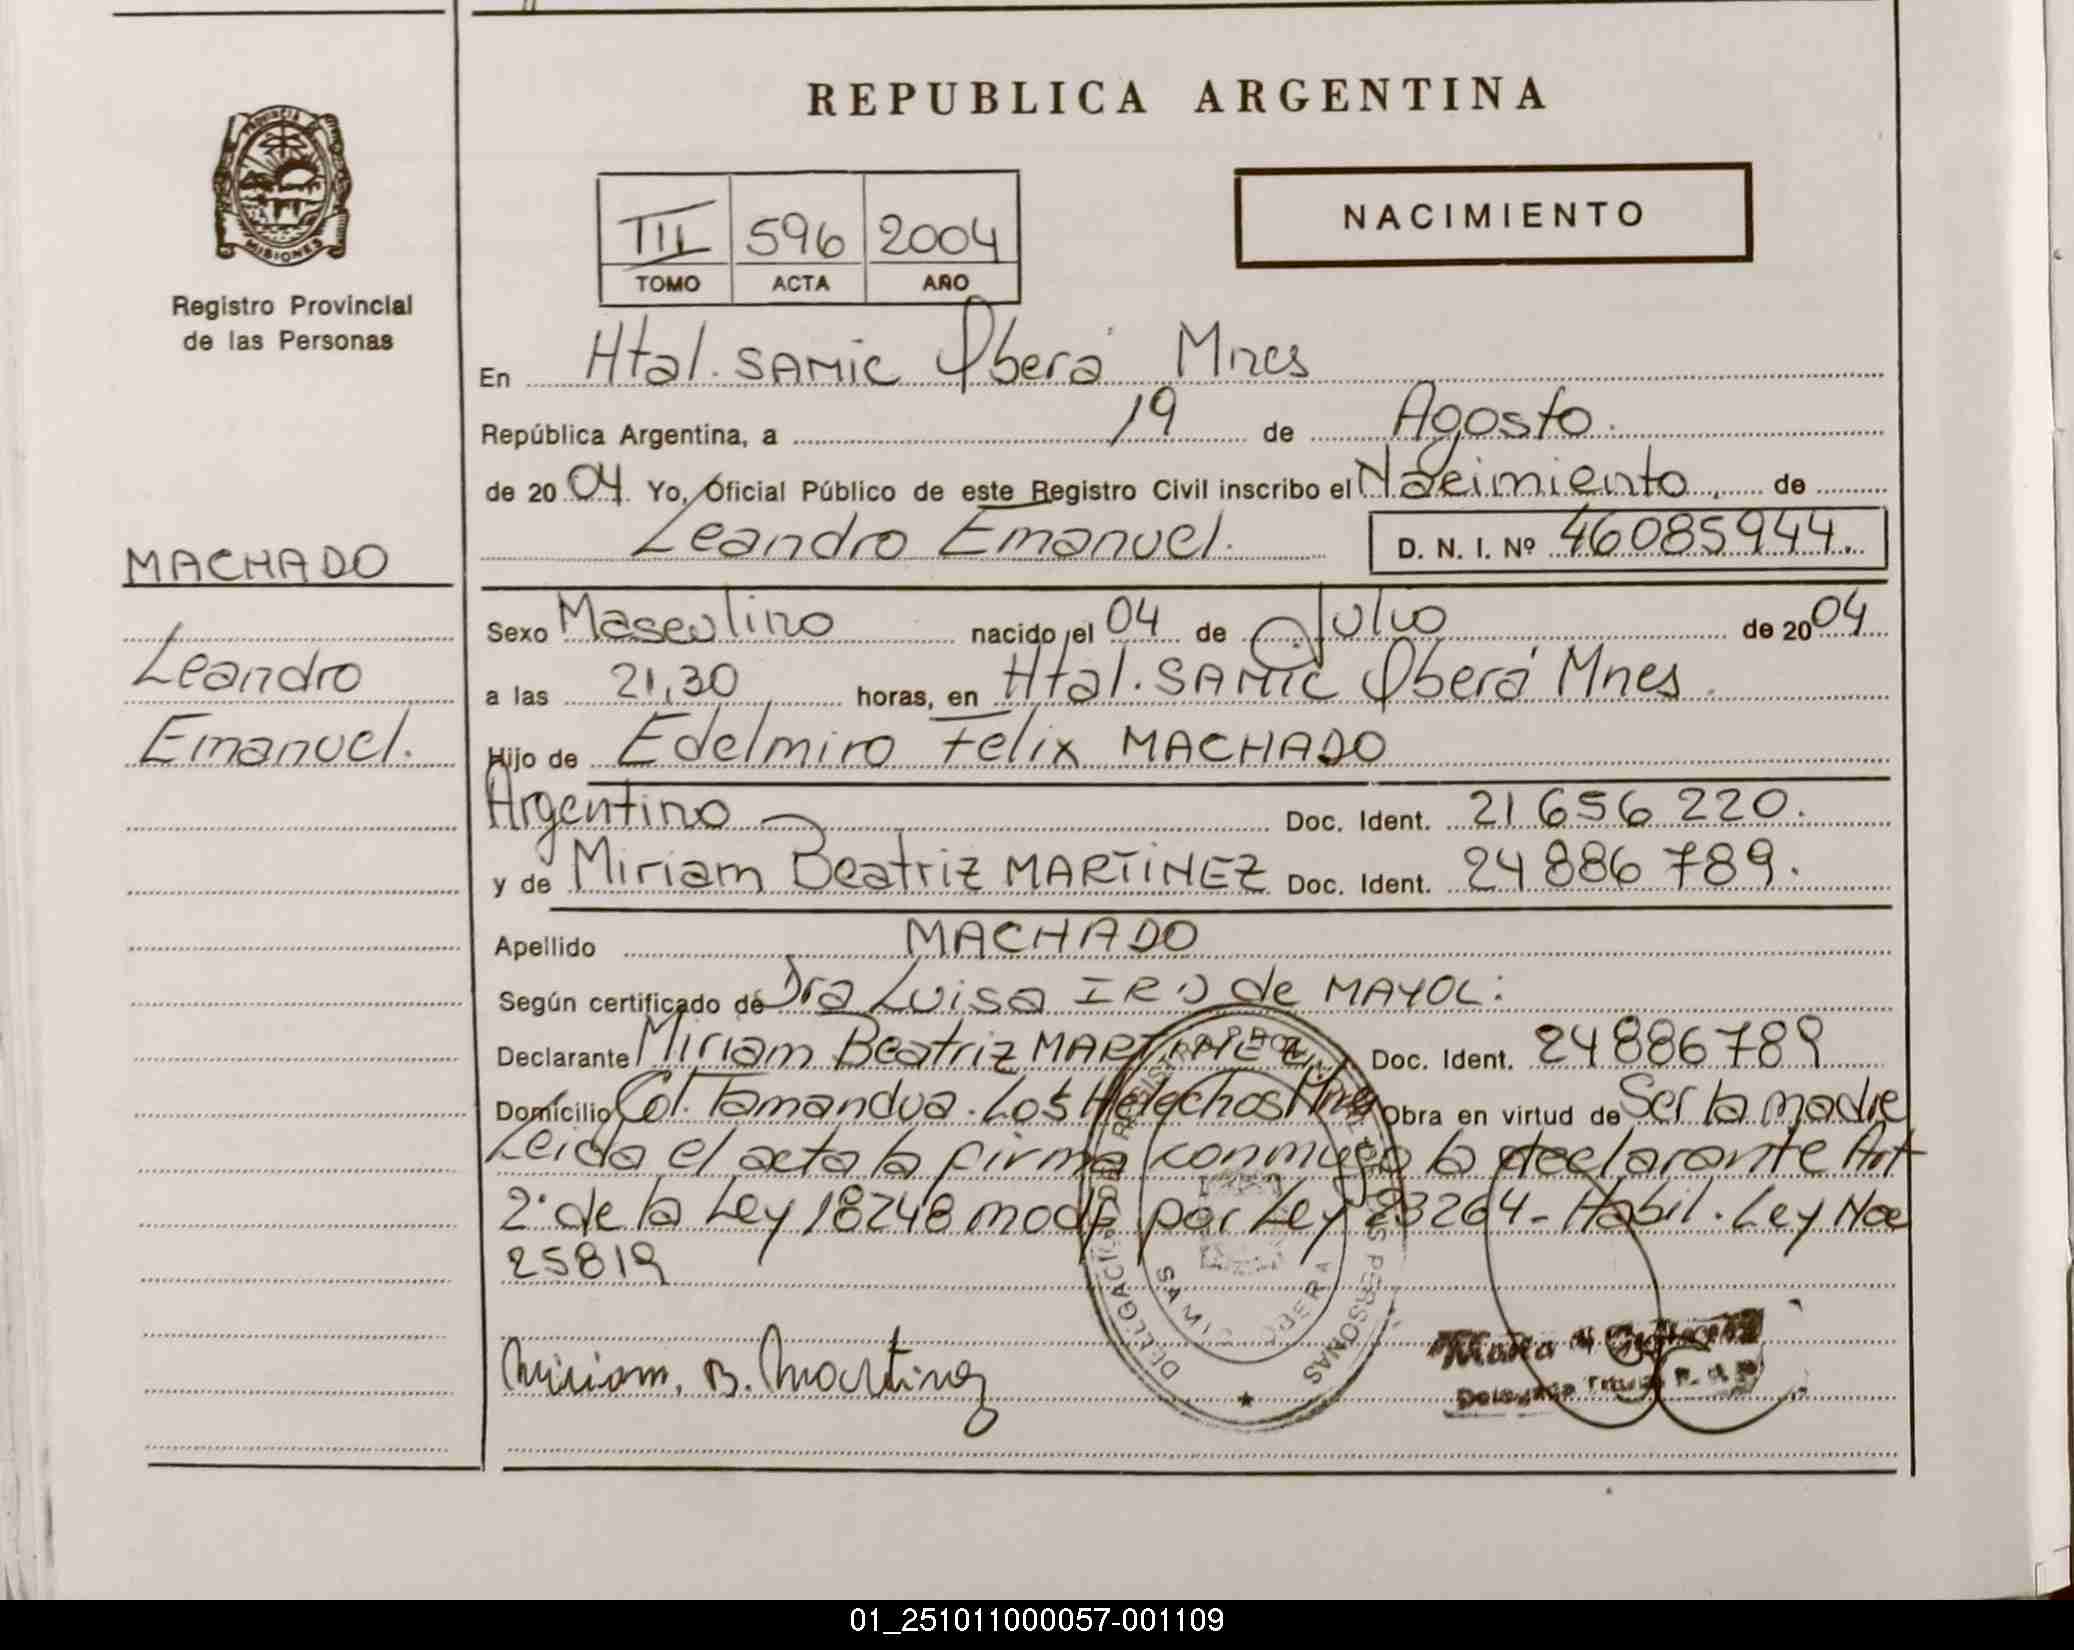 REPUBLICA ARGENTINA
PROVINCIA DE
MISIONES
Registro Provincial
de las Personas
III 596 2004
TOMO ACTA AÑO
NACIMIENTO
En Htal. SAMIC Oberá Mnes
República Argentina, a 19 de Agosto.
de 2004. Yo, Oficial Público de este Registro Civil inscribo el Nacimiento, de
Leandro Emanuel. D. N. I. Nº 46085944.
MACHADO
Leandro
Emanuel.
Sexo Masculino nacido el 04 de Julio de 2004
a las 21,30 horas, en Htal. SAMIC Oberá Mnes.
Hijo de Edelmiro Felix MACHADO
Argentino Doc. Ident. 21 656 220.
y de Miriam Beatriz MARTINEZ Doc. Ident. 24 886 789.
Apellido MACHADO
Según certificado de Dra Luisa de MAYOL:
Declarante Miriam Beatriz MARTINEZ Doc. Ident. 24886789
Domicilio Col. Tamandua. Los Helechos Mnes Obra en virtud de Ser la madre
Leida el acta la firma conmigo la declarante Art
2° de la Ley 18248 modf por Ley 23264 - Habil. Ley Nac
25819
DELEGACION REGISTRO PROVINCIAL DE LAS PERSONAS
OBERA
Miriam. B. Martinez
Maria
Delegada Titular R. de P.
01_251011000057-001109